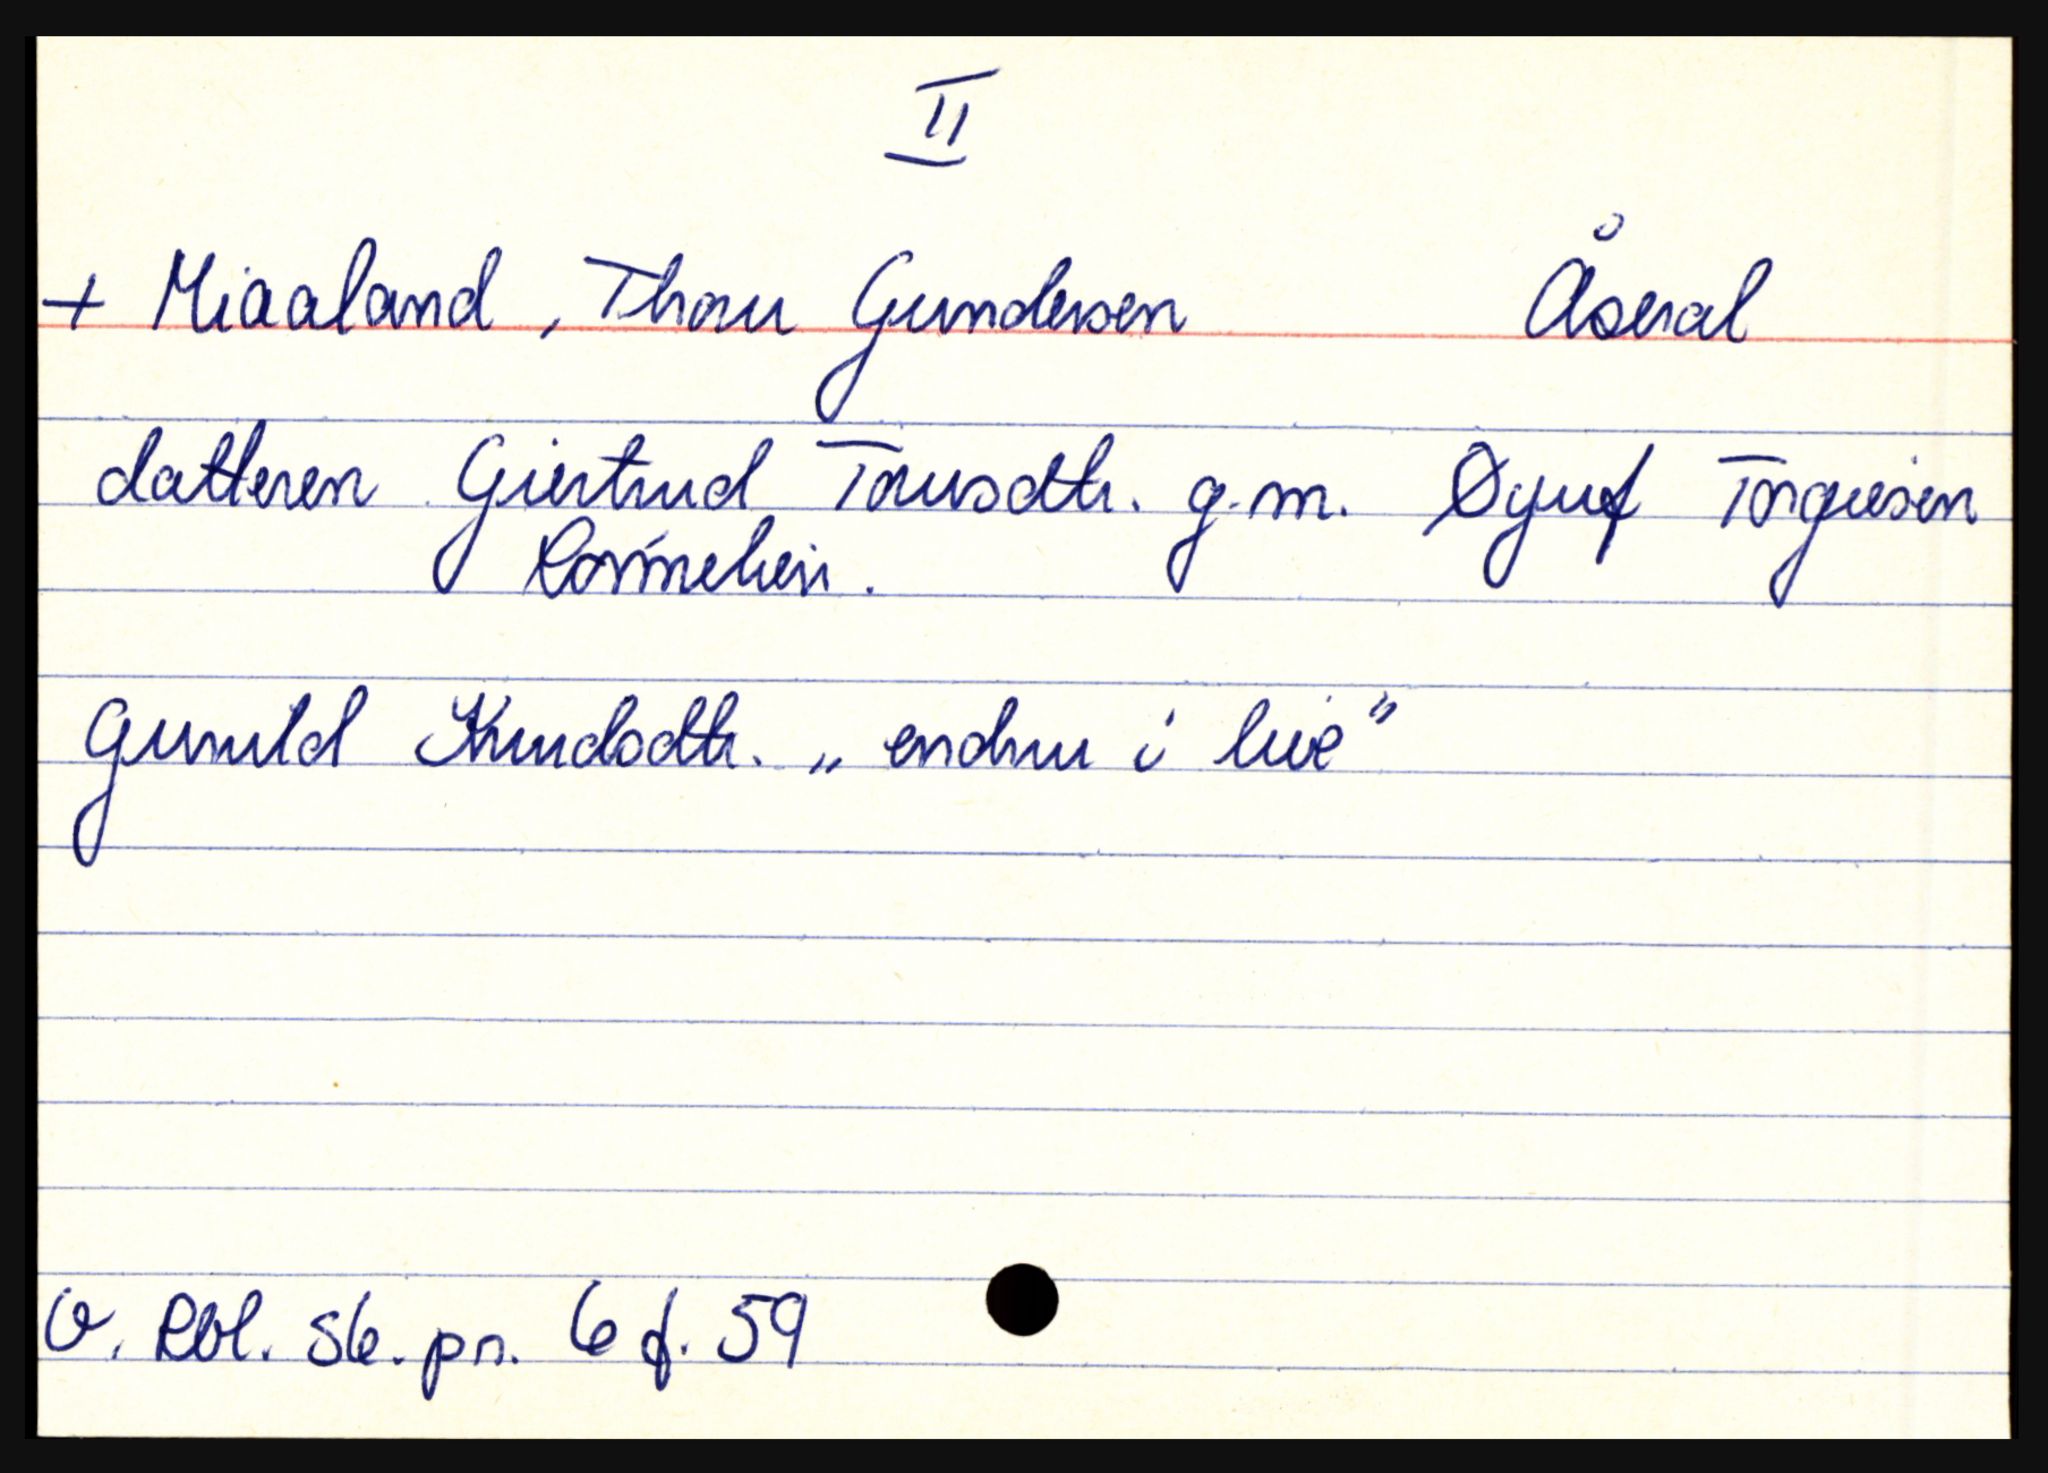 II
+ Miaaland, Thore Gundersen Åseral
datteren Giertrud Toresdtr. g.m. Øyuf Torgiesen
Gunild Knudsdtr. „ endnu i live"
V. Rbl. 56. pn. 6 f. 59